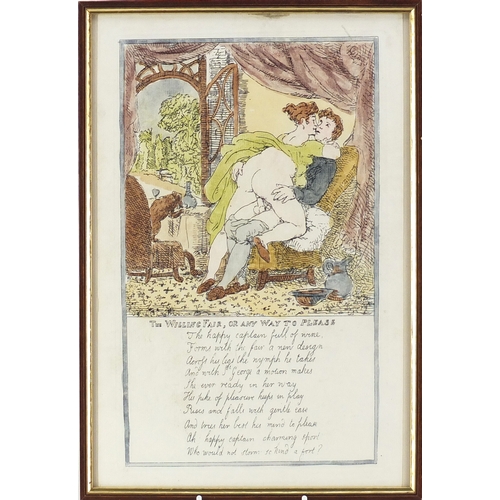 THE WILLING FAIR, OR ANY WAY TO PLEASE
The happy captain full of wine,
Forms with the fair a new design
Across his legs the nymph he takes
And with St George a motion makes
She ever ready in her way
His pike of pleasure keeps in play
Rises and falls with gentle ease
And tries her best his mind to please
Ah happy captain charming sport
Who would not storm so kind a fort?